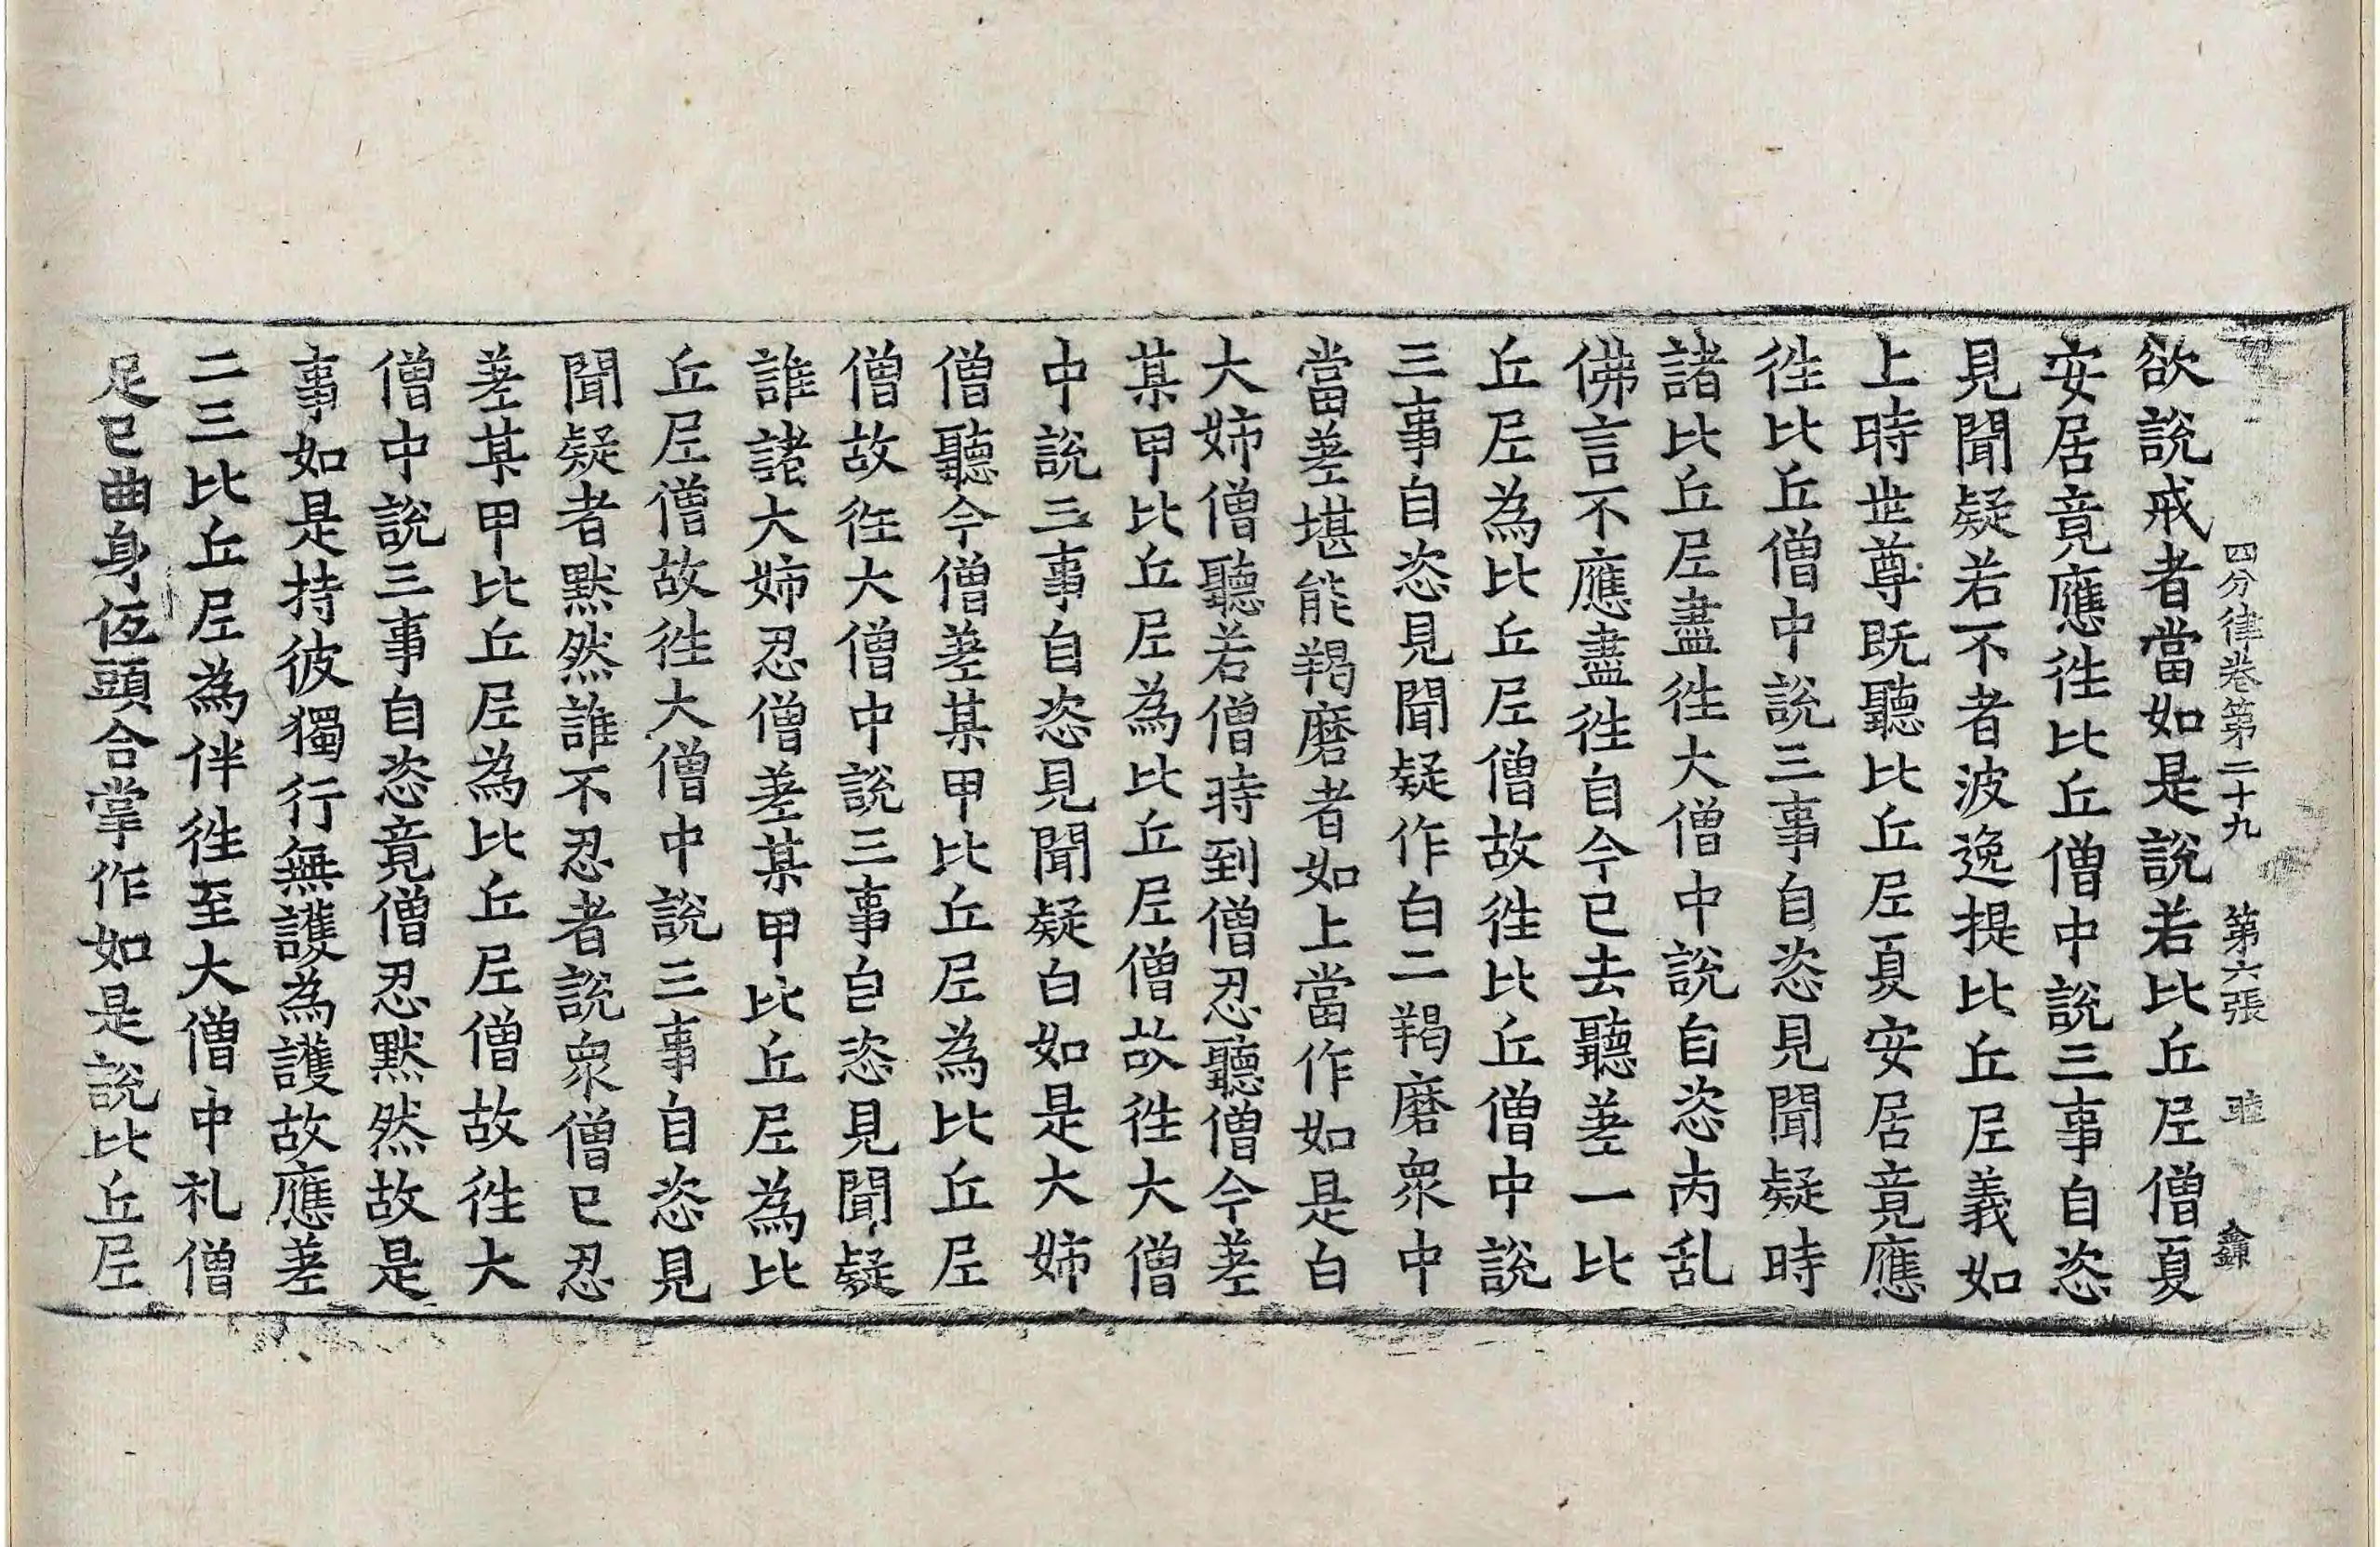 四分律卷第二十九 第六張 睦
欲說戒者當如是說若比丘尼僧夏
安居竟應徃比丘僧中說三事自恣
見聞疑若不者波逸提比丘尼義如
上時世尊既聽比丘尼夏安居竟應
徃比丘僧中說三事自恣見聞疑時
諸比丘尼盡徃大僧中說自恣閙乱
佛言不應盡徃自今已去聽差一比
丘尼為比丘尼僧故徃比丘僧中說
三事自恣見聞疑作白二羯磨衆中
當差堪能羯磨者如上當作如是白
大姊僧聽若僧時到僧忍聽僧今差
某甲比丘尼為比丘尼僧故徃大僧
中說三事自恣見聞疑白如是大姊
僧聽今僧差某甲比丘尼為比丘尼
僧故徃大僧中說三事自恣見聞疑
誰諸大姊忍僧差某甲比丘尼為比
丘尼僧故徃大僧中說三事自恣見
聞疑者默然誰不忍者說衆僧已忍
差某甲比丘尼為比丘尼僧故徃大
僧中說三事自恣竟僧忍默然故是
事如是持彼獨行無護為護故應差
二三比丘尼為伴徃至大僧中礼僧
足已曲身低頭合掌作如是說比丘尼